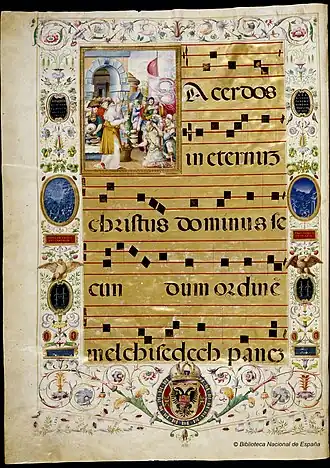 Acerdos
in eternũ
christus dominus se
cun dum ordinẽ
melchisedech panez
© Biblioteca Nacional de España